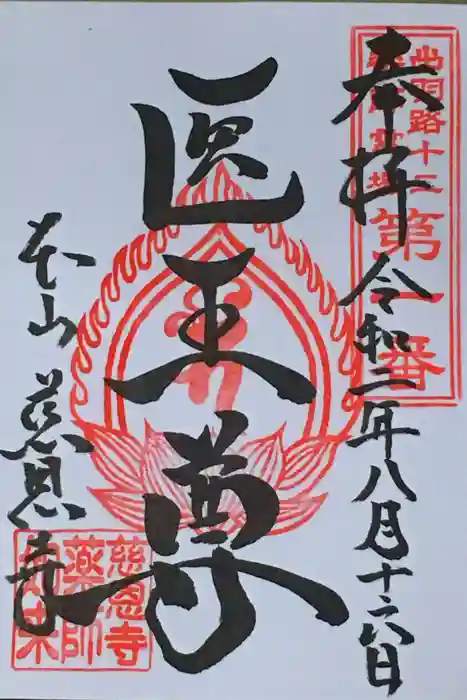 奉拝 令和二年八月十六日
出羽路十二
薬師霊場
第一番
医王尊
本山 慈恩寺
慈恩寺
薬師
如来